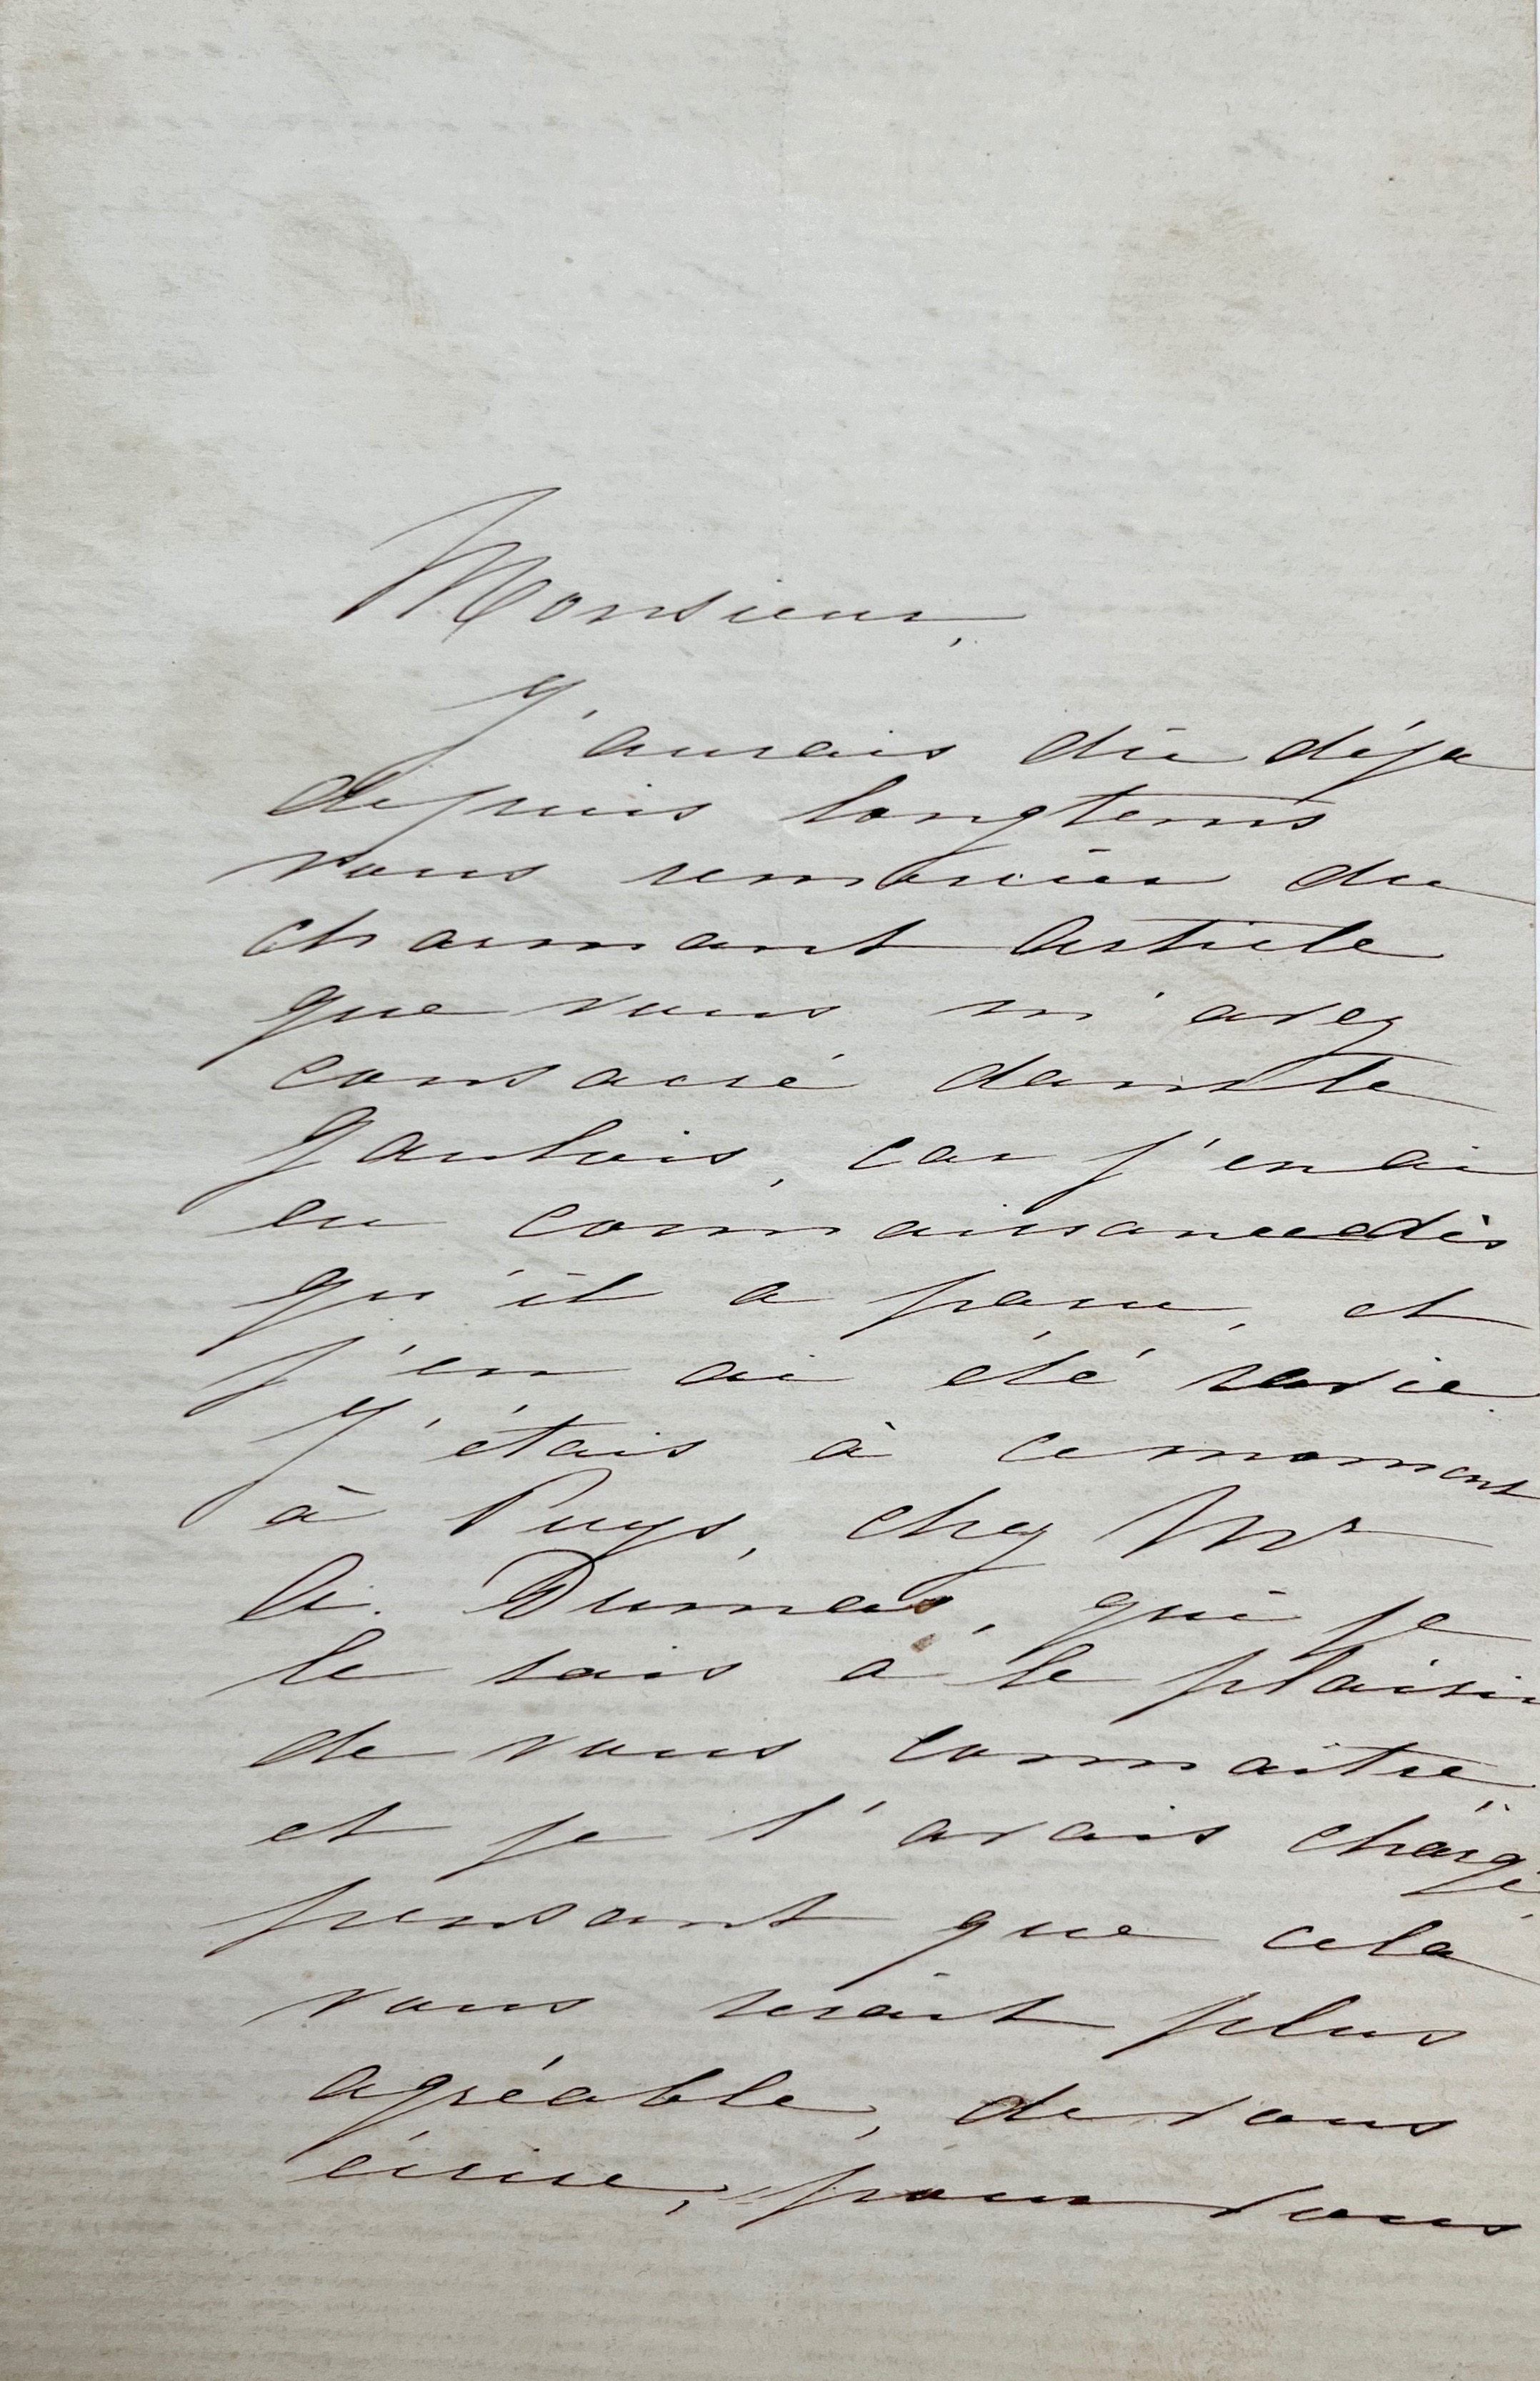 Monsieur,
J'aurais dû déja
depuis longtems
vous remercier du
charmant article
que vous m'avez
consacré dans le
Gaulois, car j'en ai
eu connaissance dès
qu'il a paru, et
j'en ai été ravie.
J'étais à ce moment
à Puys, chez Mr
A. Dumas, qui je
le sais a le plaisir
de vous connaitre,
et je l'avais chargé,
pensant que cela
vous serait plus
agréable, de vous
écrire, pour vous